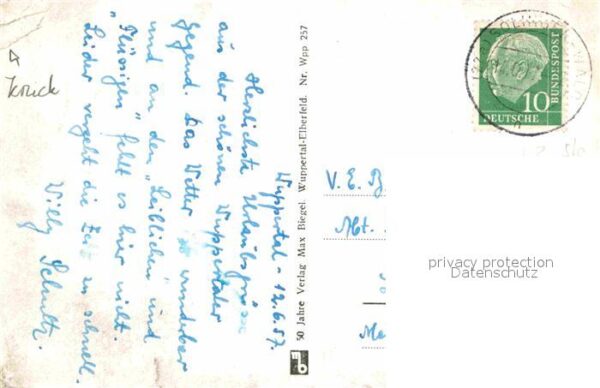 Wuppertal - 12.6.57.
Herzlichste Urlaubsgrüsse
aus der schönen Wuppertaler
Gegend. Das Wetter ist wunderbar
und an den „Leiblichen" und
„Flüssigen" fehlt es hier nicht.
Leider vergeht die Zeit zu schnell.
Willy Schultz.
50 Jahre Verlag Max Biegel, Wuppertal-Elberfeld. Nr. Wpp 257
10
DEUTSCHE
BUNDESPOST
V. E. B
Abt.
privacy protection
Datenschutz